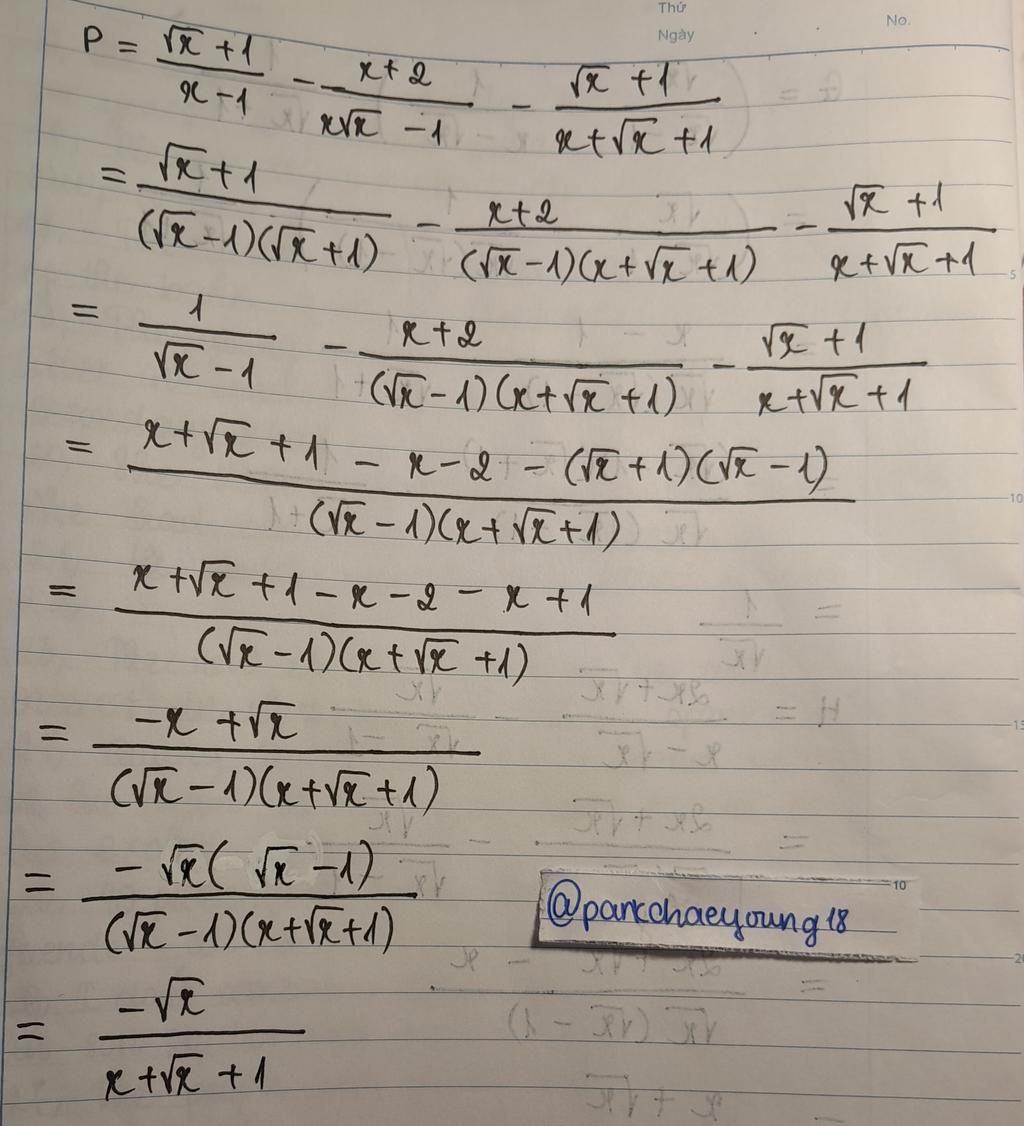 Thứ
No.
Ngày
P = (√x + 1)/(x - 1) - (x + 2)/(x√x - 1) - (√x + 1)/(x + √x + 1)
= (√x + 1)/((√x - 1)(√x + 1)) - (x + 2)/((√x - 1)(x + √x + 1)) - (√x + 1)/(x + √x + 1)
5
= 1/(√x - 1) - (x + 2)/((√x - 1)(x + √x + 1)) - (√x + 1)/(x + √x + 1)
= (x + √x + 1 - x - 2 - (√x + 1)(√x - 1))/((√x - 1)(x + √x + 1))
10
= (x + √x + 1 - x - 2 - x + 1)/((√x - 1)(x + √x + 1))
= (-x + √x)/((√x - 1)(x + √x + 1))
= (-√x(√x - 1))/((√x - 1)(x + √x + 1))
10
@parkchaeyoung18
= (-√x)/(x + √x + 1)